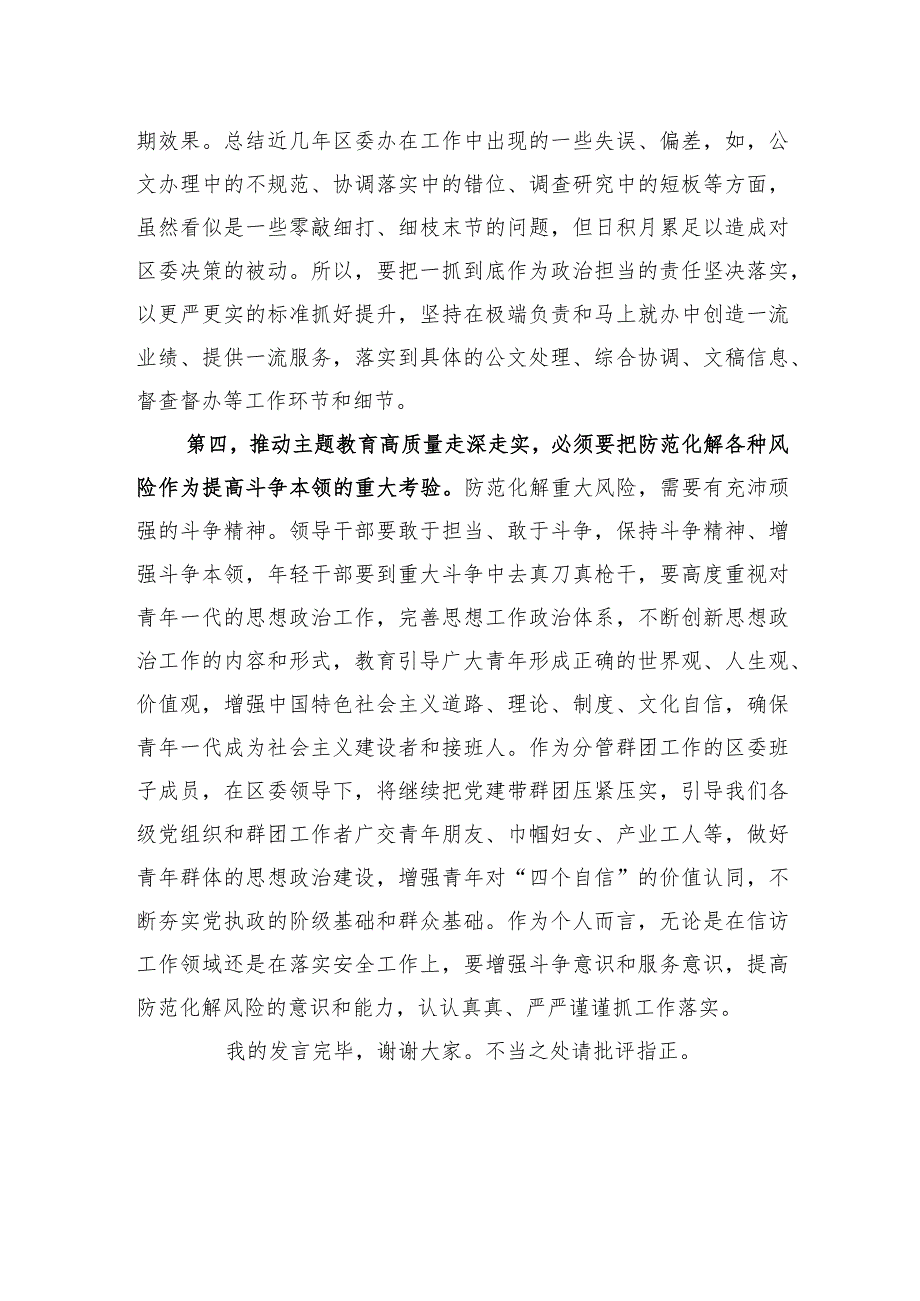 期效果。总结近几年区委办在工作中出现的一些失误、偏差，如，公
文办理中的不规范、协调落实中的错位、调查研究中的短板等方面，
虽然看似是一些零敲细打、细枝末节的问题，但日积月累足以造成对
区委决策的被动。所以，要把一抓到底作为政治担当的责任坚决落实，
以更严更实的标准抓好提升，坚持在极端负责和马上就办中创造一流
业绩、提供一流服务，落实到具体的公文处理、综合协调、文稿信息、
督查督办等工作环节和细节。
第四，推动主题教育高质量走深走实，必须要把防范化解各种风
险作为提高斗争本领的重大考验。防范化解重大风险，需要有充沛顽
强的斗争精神。领导干部要敢于担当、敢于斗争，保持斗争精神、增
强斗争本领，年轻干部要到重大斗争中去真刀真枪干，要高度重视对
青年一代的思想政治工作，完善思想工作政治体系，不断创新思想政
治工作的内容和形式，教育引导广大青年形成正确的世界观、人生观、
价值观，增强中国特色社会主义道路、理论、制度、文化自信，确保
青年一代成为社会主义建设者和接班人。作为分管群团工作的区委班
子成员，在区委领导下，将继续把党建带群团压紧压实，引导我们各
级党组织和群团工作者广交青年朋友、巾帼妇女、产业工人等，做好
青年群体的思想政治建设，增强青年对“四个自信”的价值认同，不
断夯实党执政的阶级基础和群众基础。作为个人而言，无论是在信访
工作领域还是在落实安全工作上，要增强斗争意识和服务意识，提高
防范化解风险的意识和能力，认认真真、严严谨谨抓工作落实。
我的发言完毕，谢谢大家。不当之处请批评指正。